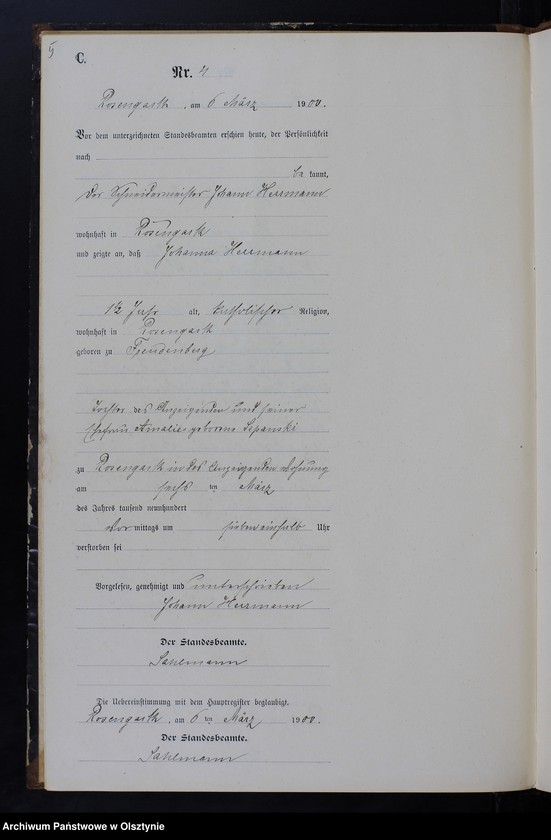 5
C.
Nr. 4
Rosengarth, am 6 März 1900.
Vor dem unterzeichneten Standesbeamten erschien heute, der Persönlichkeit
nach
be kannt,
der Schneidermeister Johann Herrmann
wohnhaft in Rosengarth
und zeigte an, daß Johanna Herrmann
1½ Jahr alt, katholischer Religion,
wohnhaft in Rosengarth
geboren zu Freudenberg
Tochter des Anzeigenden und seiner
Ehefrau Amalie geborene
zu Rosengarth in des Anzeigenden Wohnung
am sechs ten März
des Jahres tausend neunhundert
Vor mittags um sieben einhalb Uhr
verstorben sei
Vorgelesen, genehmigt und unterschrieben
Johann Herrmann
Der Standesbeamte.
Sahlmann
Die Uebereinstimmung mit dem Hauptregister beglaubigt.
Rosengarth, am 6 ten März 1900.
Der Standesbeamte.
Sahlmann
Archiwum Państwowe w Olsztynie